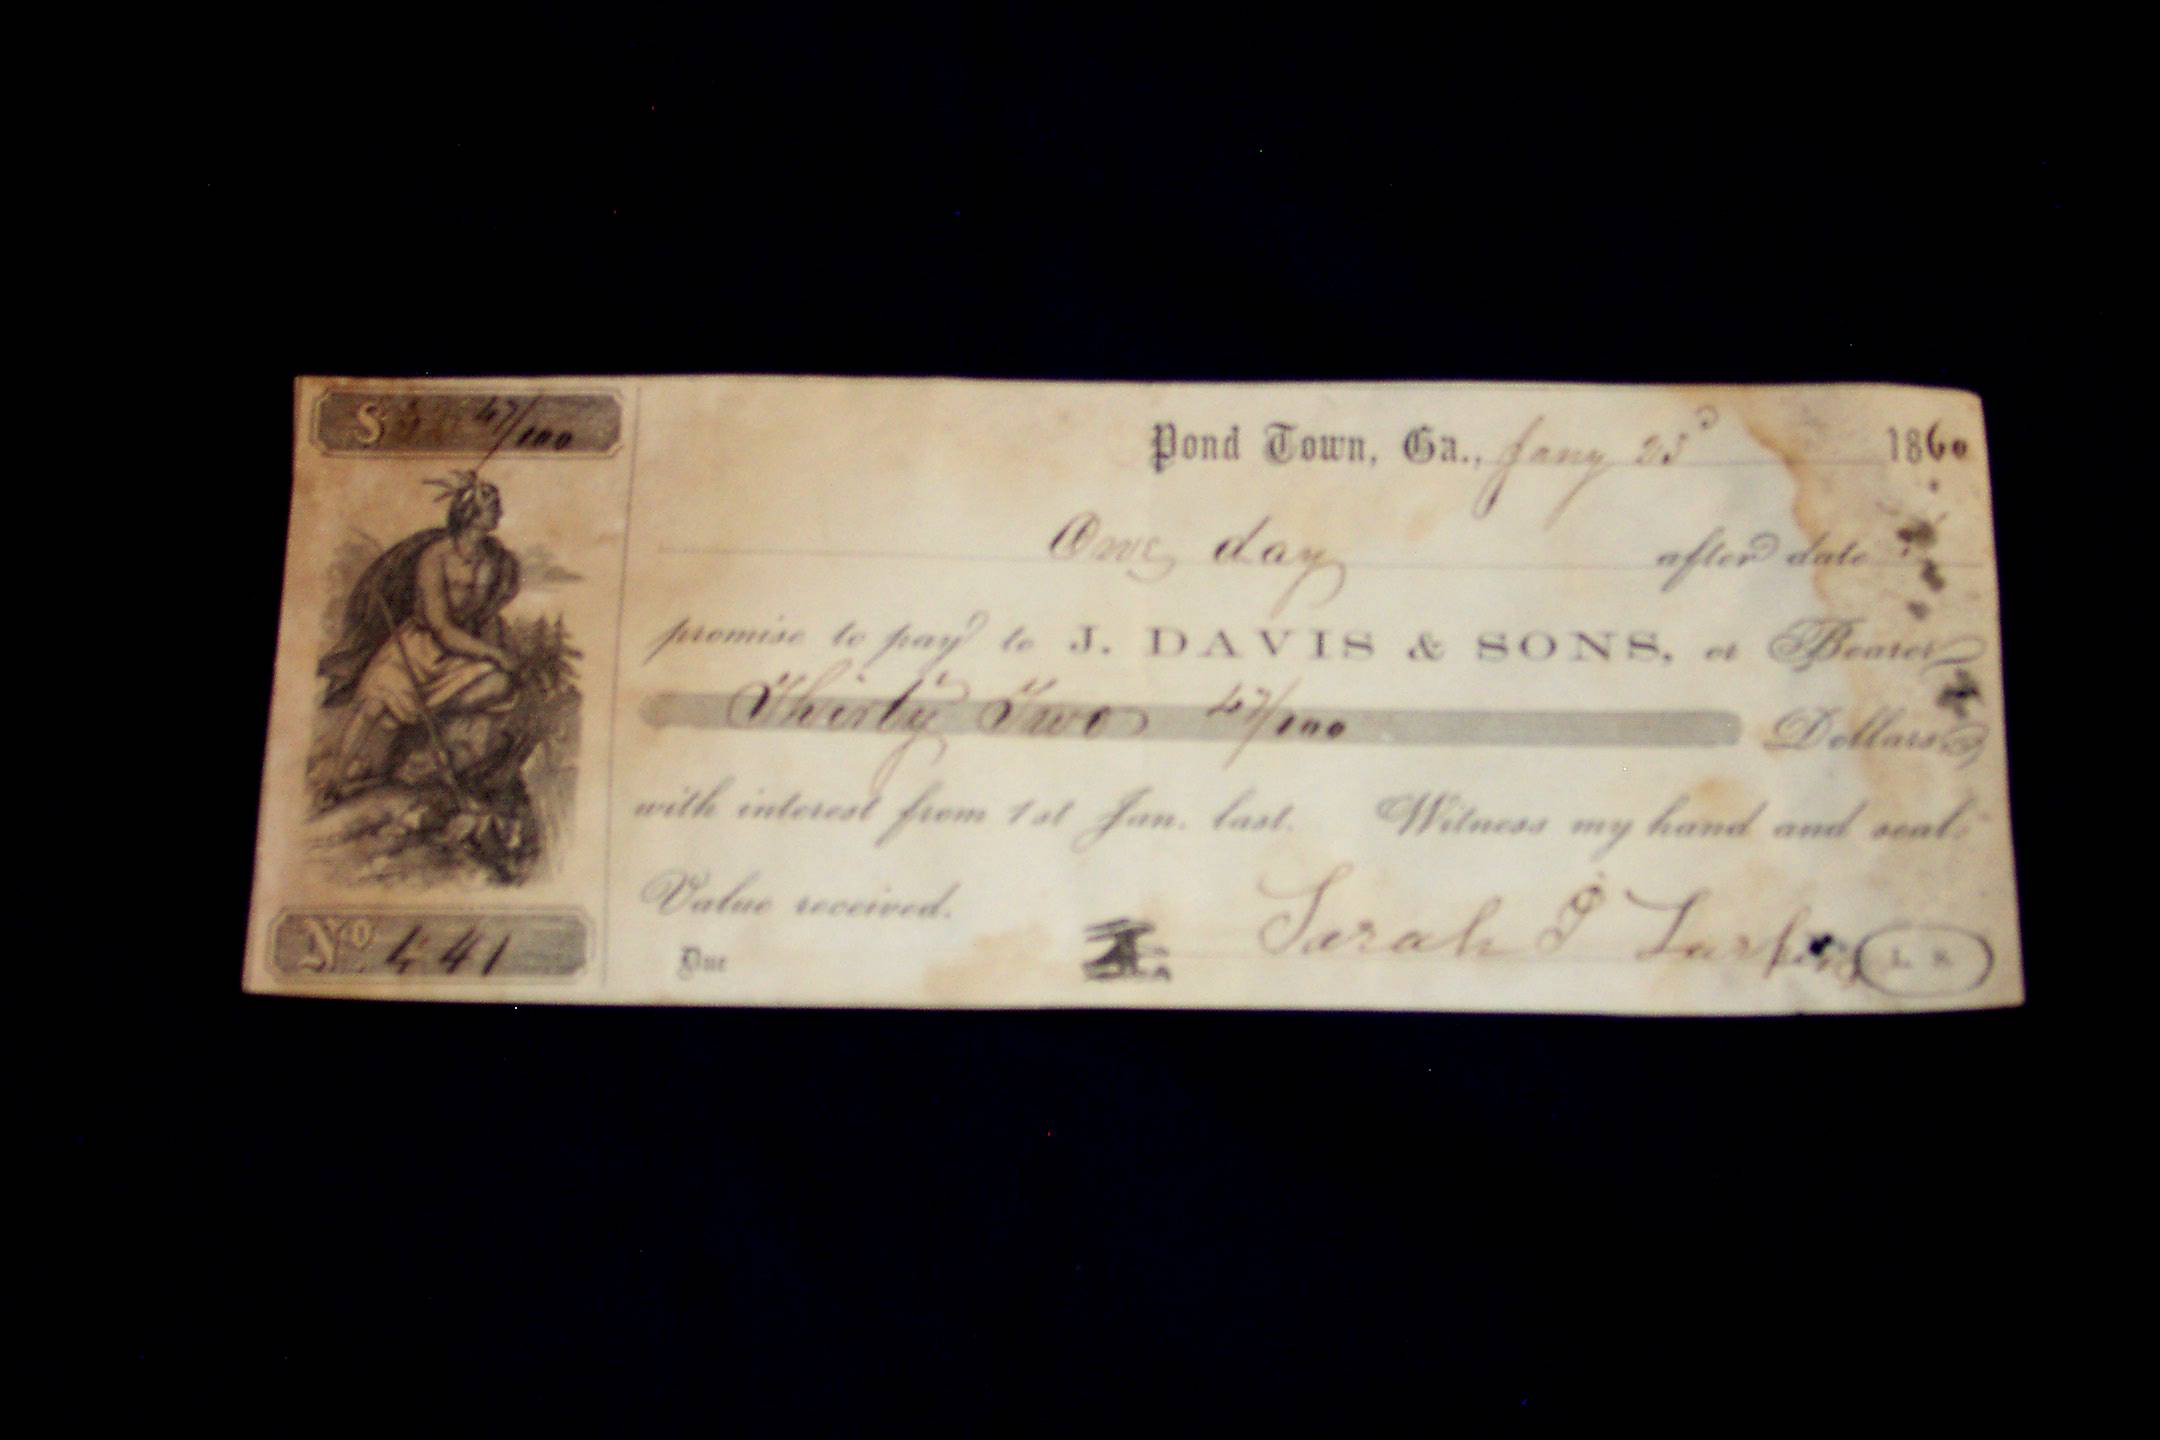 $ 47/100
Pond Town, Ga., Jany 1860
One day after date
promise to pay to J. DAVIS & SONS, or Bearer
Thirty Two 47/100 Dollars
with interest from 1st Jan. last. Witness my hand and seal.
Value received.
Sarah Larkins L S
No 441
Due